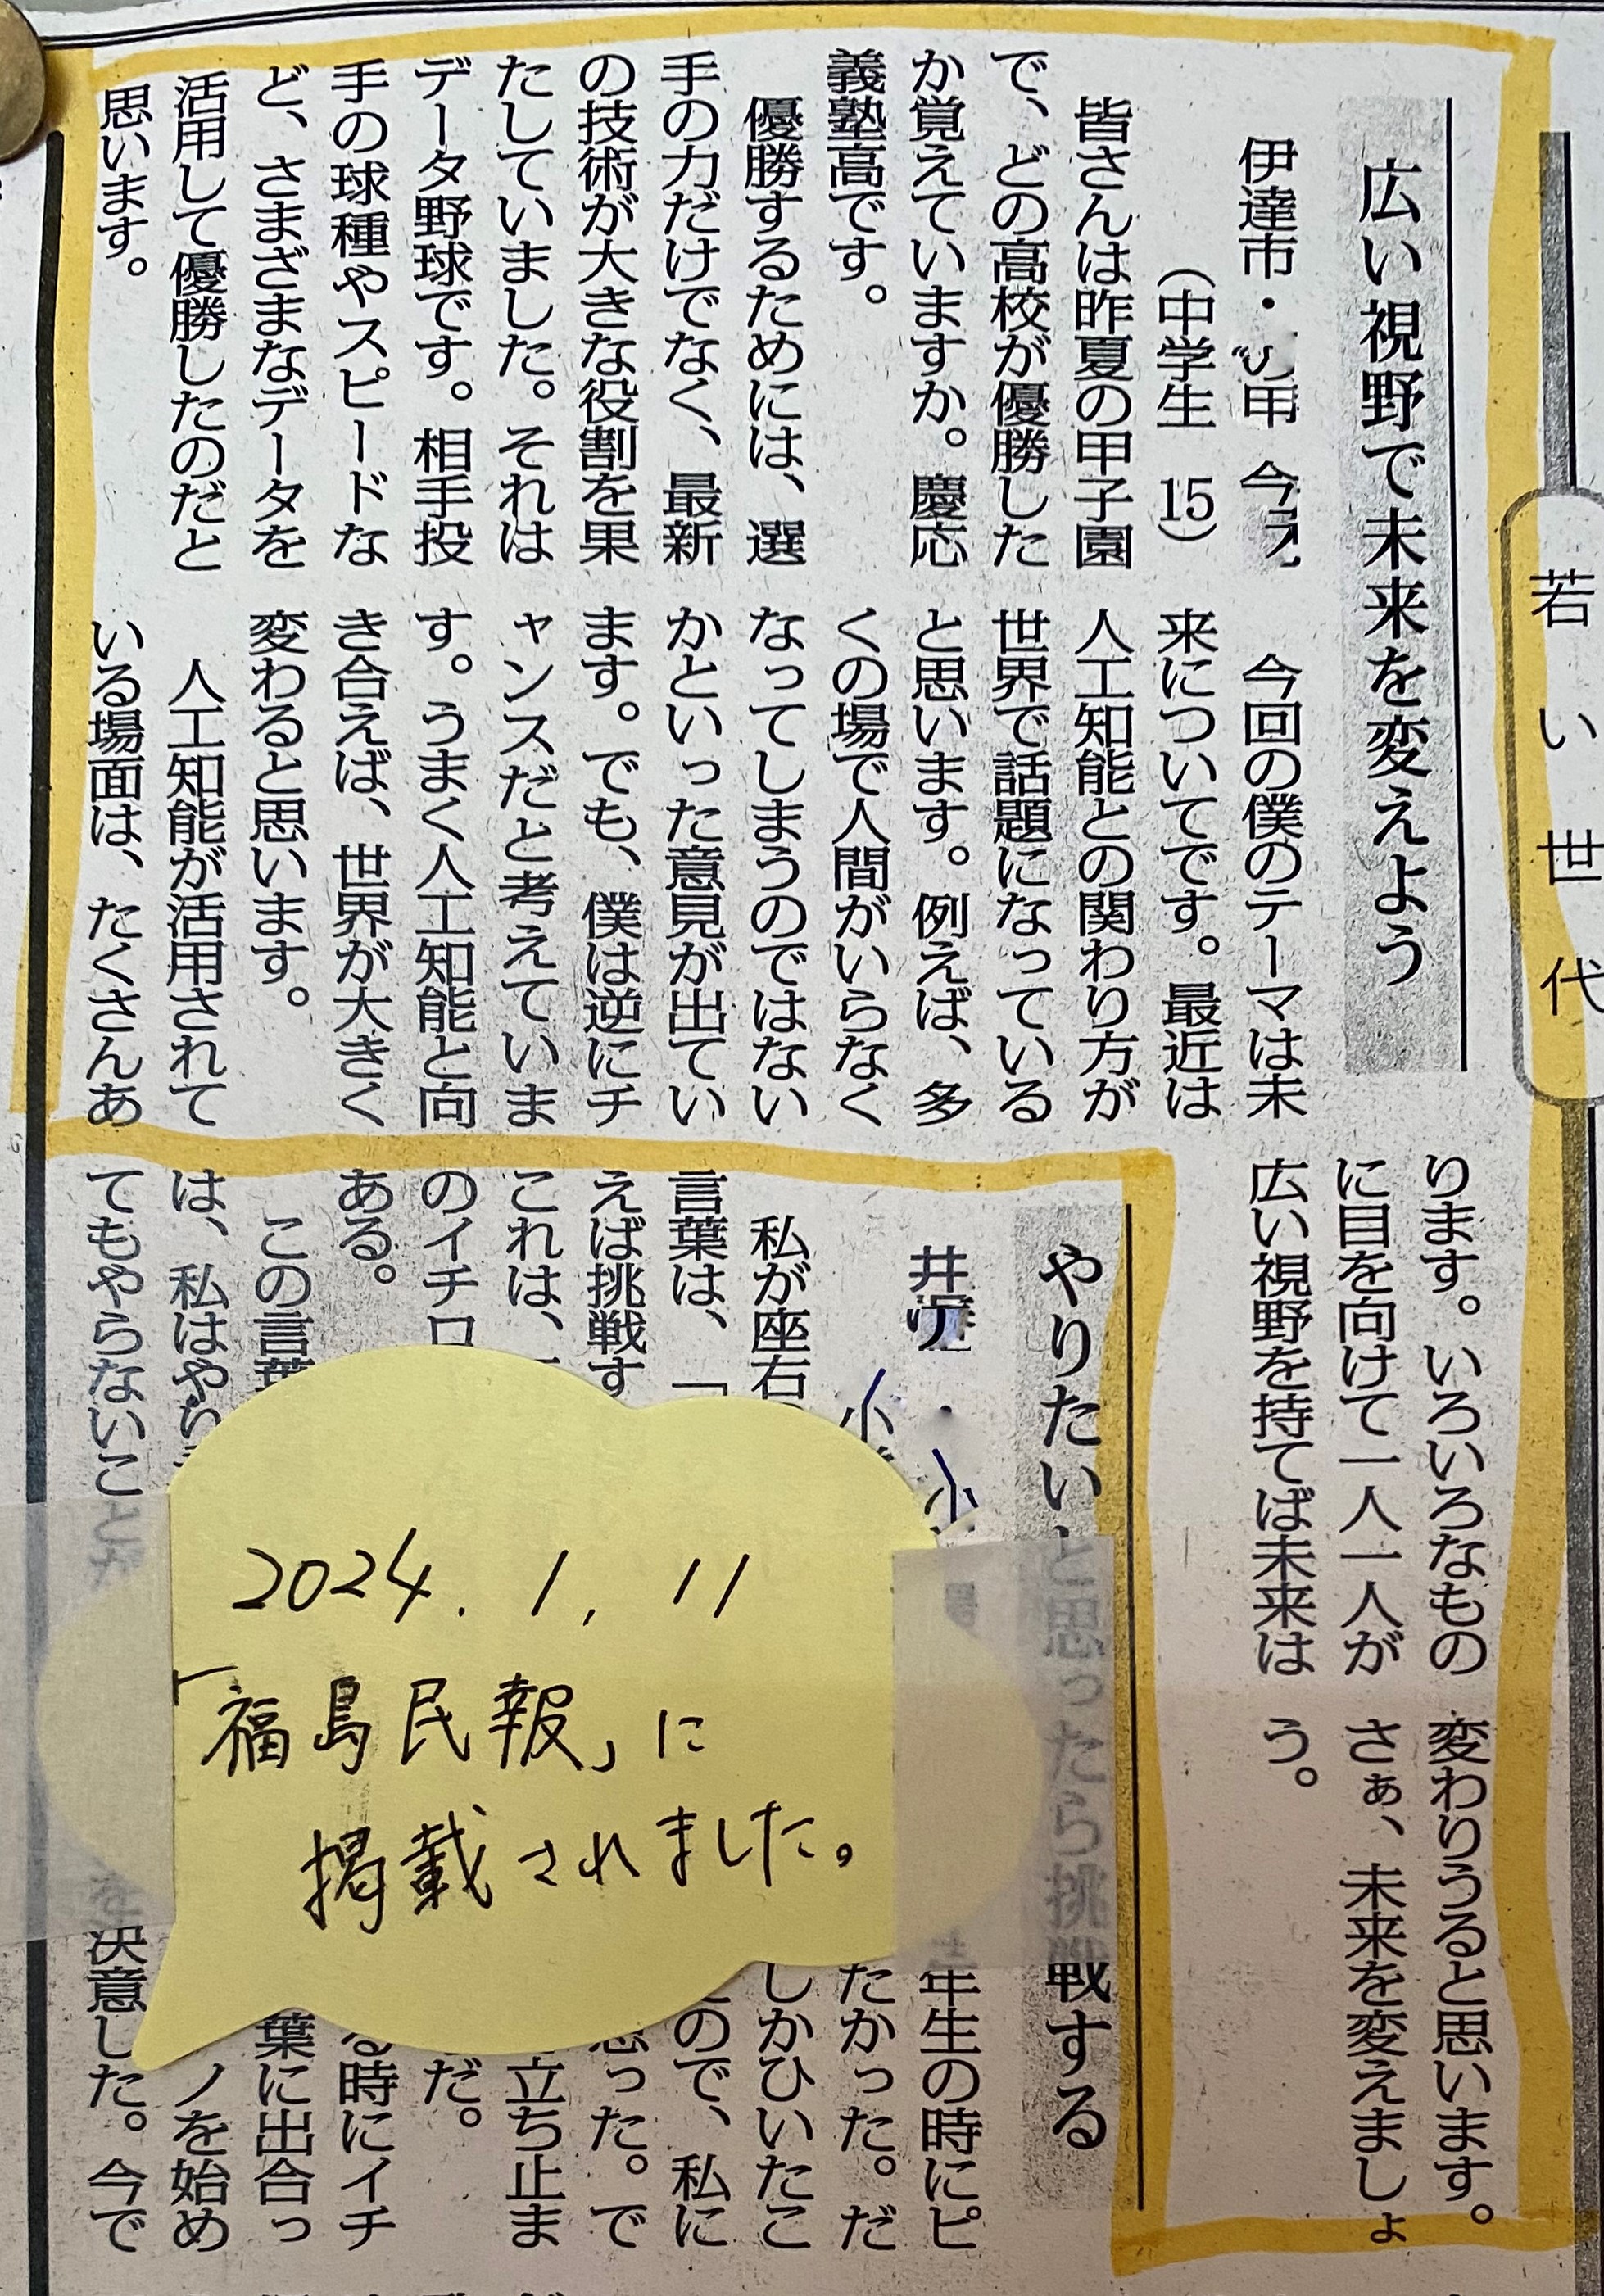 若い世代
広い視野で未来を変えよう
伊達市・
(中学生 15)
皆さんは昨夏の甲子園
で、どの高校が優勝した
か覚えていますか。慶応
義塾高です。
優勝するためには、選
手の力だけでなく、最新
の技術が大きな役割を果
たしていました。それは
データ野球です。相手投
手の球種やスピードな
ど、さまざまなデータを
活用して優勝したのだと
思います。
今回の僕のテーマは未
来についてです。最近は
人工知能との関わり方が
世界で話題になっている
と思います。例えば、多
くの場で人間がいらなく
なってしまうのではない
かといった意見が出てい
ます。でも、僕は逆にチ
ャンスだと考えていま
す。うまく人工知能と向
き合えば、世界が大きく
変わると思います。
人工知能が活用されて
いる場面は、たくさんあ
ります。いろいろなもの
に目を向けて一人一人が
広い視野を持てば未来は
変わりうると思います。
さぁ、未来を変えましょ
う。
やりたいと思ったら挑戦する
私が座右
言葉は、「
えば挑戦す
これは、
のイチロ
ある。
この言葉
は、私はや
てもやらないこと
年生の時にピ
たかった。だ
しかひいたこ
ので、私に
思った。で
立ち止ま
だ。
る時にイチ
葉に出合っ
ノを始め
決意した。今で
2024.1.11
「福島民報」に
掲載されました。